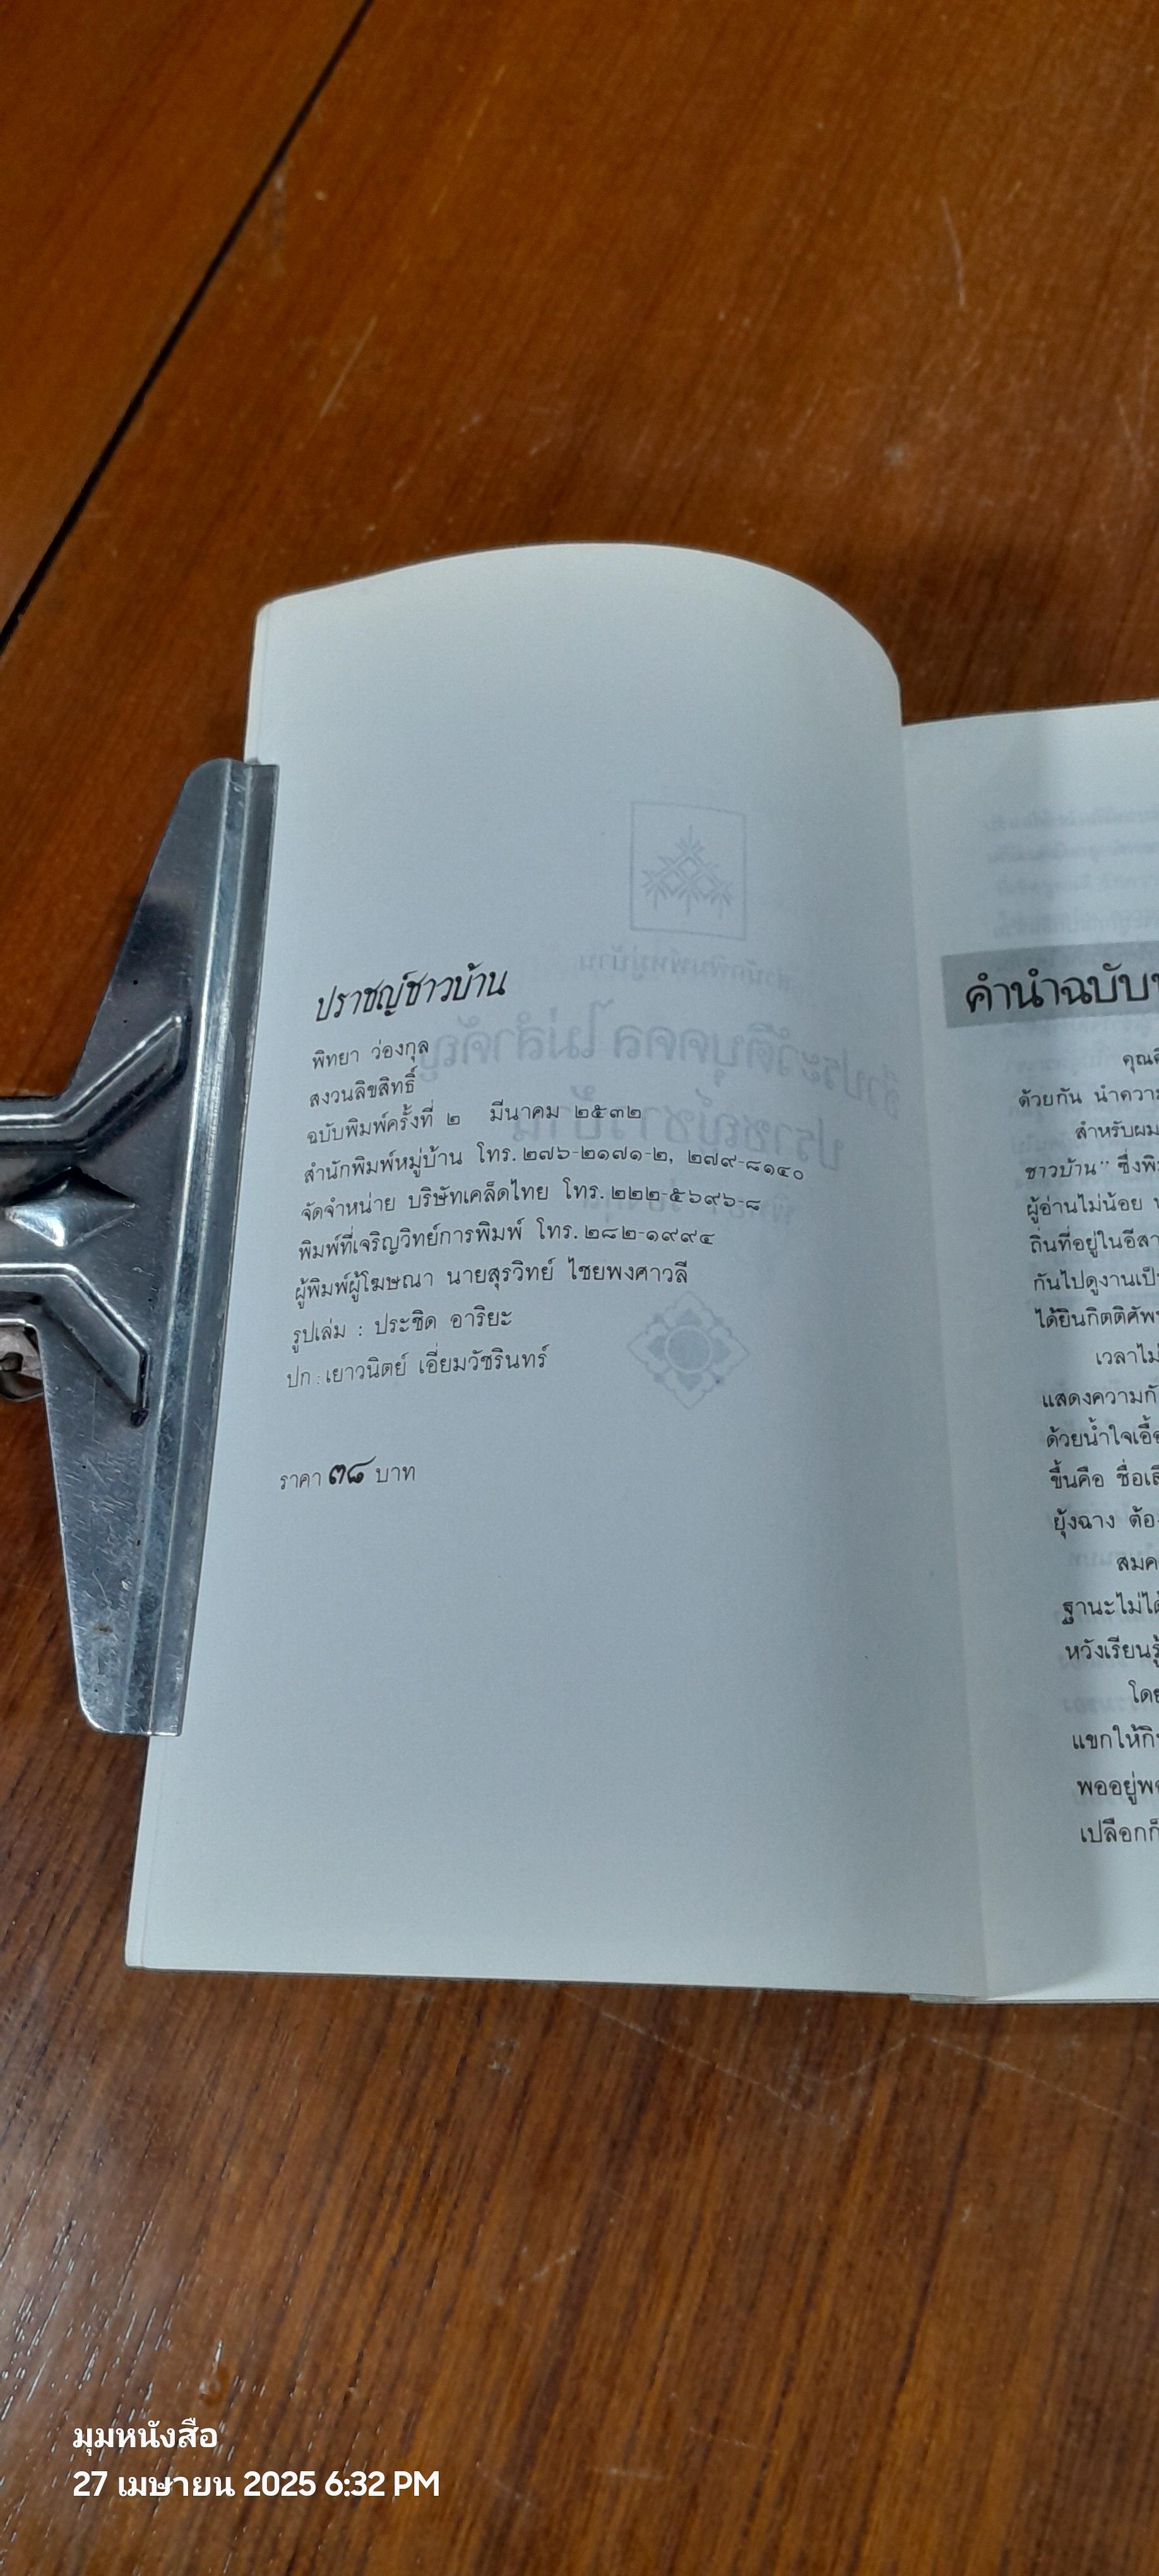 ปราชญ์ชาวบ้าน
พิทยา ว่องกุล
สงวนลิขสิทธิ์
ฉบับพิมพ์ครั้งที่ ๒ มีนาคม ๒๕๓๒
สำนักพิมพ์หมู่บ้าน โทร. ๒๗๖-๒๑๗๑-๒, ๒๗๙-๘๑๔๐
จัดจำหน่าย บริษัทเคล็ดไทย โทร. ๒๒๒-๕๖๙๖-๘
พิมพ์ที่เจริญวิทย์การพิมพ์ โทร. ๒๘๒-๑๙๙๔
ผู้พิมพ์ผู้โฆษณา นายสุรวิทย์ ไชยพงศาวลี
รูปเล่ม : ประชิด อาริยะ
ปก : เยาวนิตย์ เอี่ยมวัชรินทร์
ราคา ๓๘ บาท
คำนำฉบับ
ด้วยกัน
สำหรับผม
ชาวบ้าน" ซึ่งพิ
ผู้อ่านไม่น้อย
ถิ่นที่อยู่ในอีสา
กันไปดูงานเป็
ได้ยินกิตติศัพ
เวลาไม่
แสดงความกั
ด้วยน้ำใจเอื้อ
ขึ้นคือ ชื่อเสี
ยุ้งฉาง ต้อ
สมค
ฐานะไม่ได้
หวังเรียนรู้
โดย
แขกให้กิ
พออยู่พอ
เปลือกก็
มุมหนังสือ
27 เมษายน 2025 6:32 PM